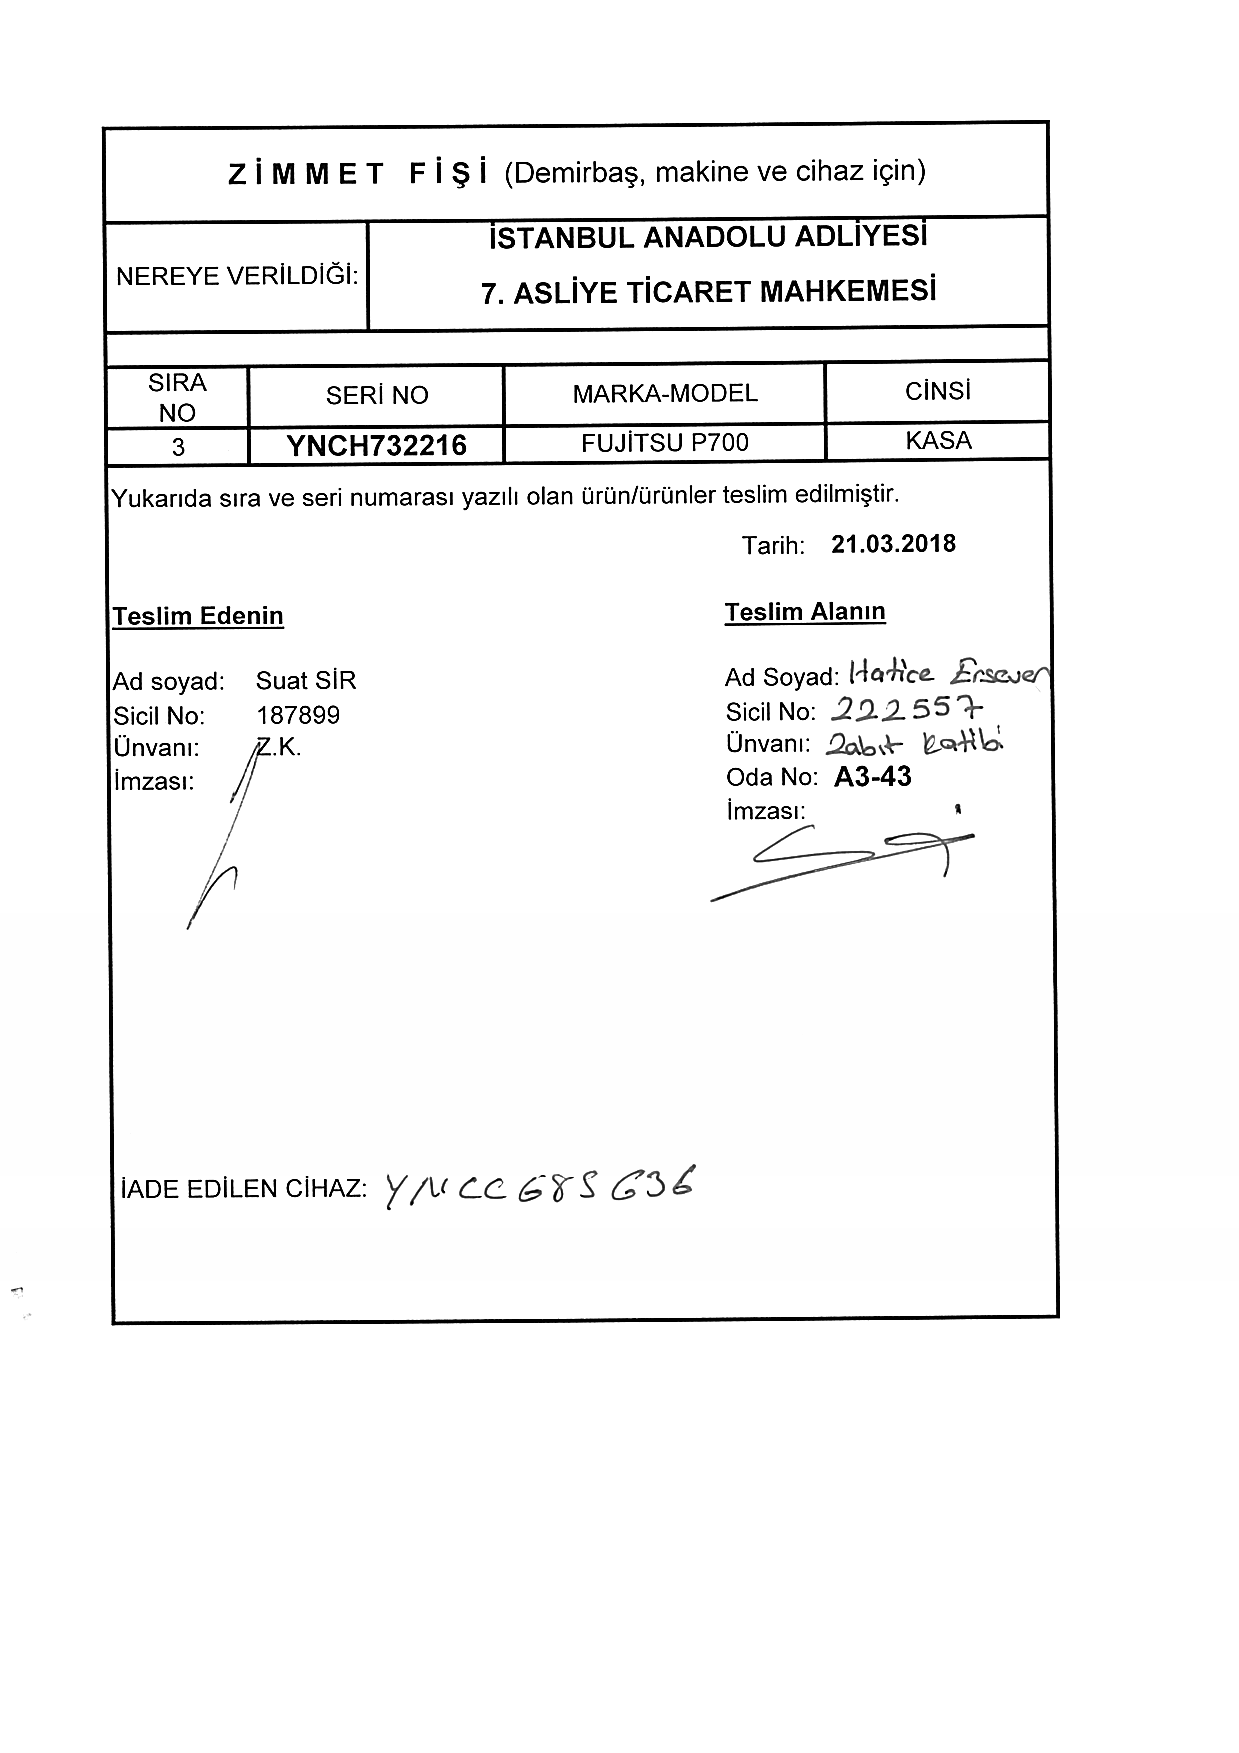 ZİMMET FİŞİ (Demirbaş, makine ve cihaz için)
NEREYE VERİLDİĞİ:
İSTANBUL ANADOLU ADLİYESİ
7. ASLİYE TİCARET MAHKEMESİ
SIRA NO SERİ NO MARKA-MODEL CİNSİ
3 YNCH732216 FUJİTSU P700 KASA
Yukarıda sıra ve seri numarası yazılı olan ürün/ürünler teslim edilmiştir.
Tarih: 21.03.2018
Teslim Edenin
Ad soyad: Suat SİR
Sicil No: 187899
Ünvanı: Z.K.
İmzası:
Teslim Alanın
Ad Soyad: Hatice Ersever
Sicil No: 222557
Ünvanı: Zabıt Katibi
Oda No: A3-43
İmzası:
İADE EDİLEN CİHAZ: YNCC685636